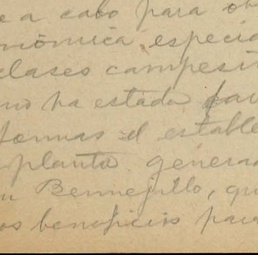 e a cabo para ob
onómica, especia
clases campesi
no ha estado fav
formas el estable
planta genera
en Bermejillo, qu
os beneficios para